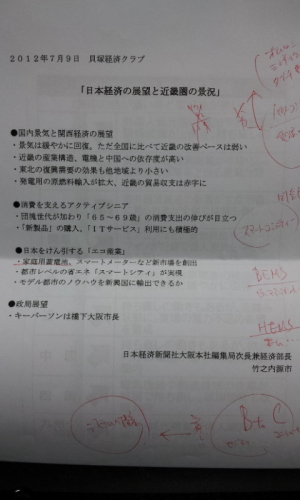 2012年7月9日 貝塚経済クラブ
「日本経済の展望と近畿圏の景況」
●国内景気と関西経済の展望
・景気は緩やかに回復。ただ全国に比べて近畿の改善ペースは弱い
・近畿の産業構造、電機と中国への依存度が高い
・東北の復興需要の効果も他地域より小さい
・発電用の原燃料輸入が拡大、近畿の貿易収支は赤字に
●消費を支えるアクティブシニア
・団塊世代が加わり「65~69歳」の消費支出の伸びが目立つ
・「新製品」の購入、「ITサービス」利用にも積極的
●日本をけん引する「エコ産業」
・家庭用蓄電池、スマートメーターなど新市場を創出
・都市レベルの省エネ「スマートシティ」が実現
・モデル都市のノウハウを新興国に輸出できるか
●政局展望
・キーパーソンは橋下大阪市長
日本経済新聞社大阪本社編集局次長兼経済部長
竹之内源市
BEMS
HEMS
B to C